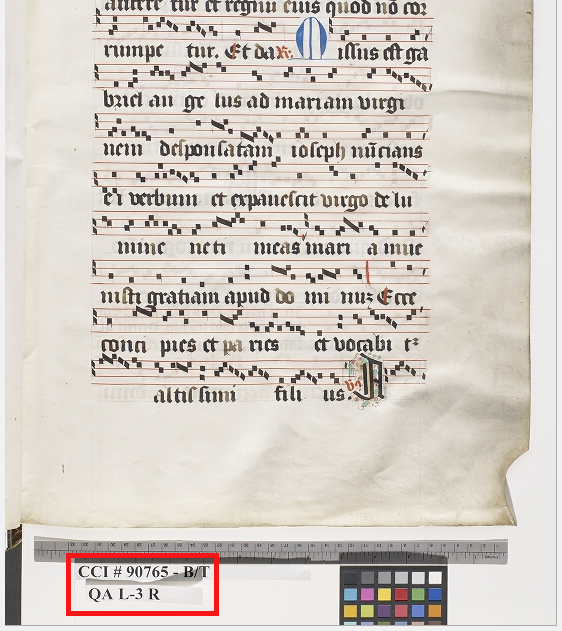 auferetur et regnum eius quod nō cor
rumpe tur. Et dabit. Missus est ga
briel an ge lus ad mariam virgi
nem desponsatam ioseph nūcians
ei verbum et expauescit virgo de lu
mine ne ti meas mari a inue
nisti gratiam apud do mi nuz Ecce
conci pies et pa ries et vocabi t²
altissimi fili us.
CCI # 90765 - B/T
QA L-3 R